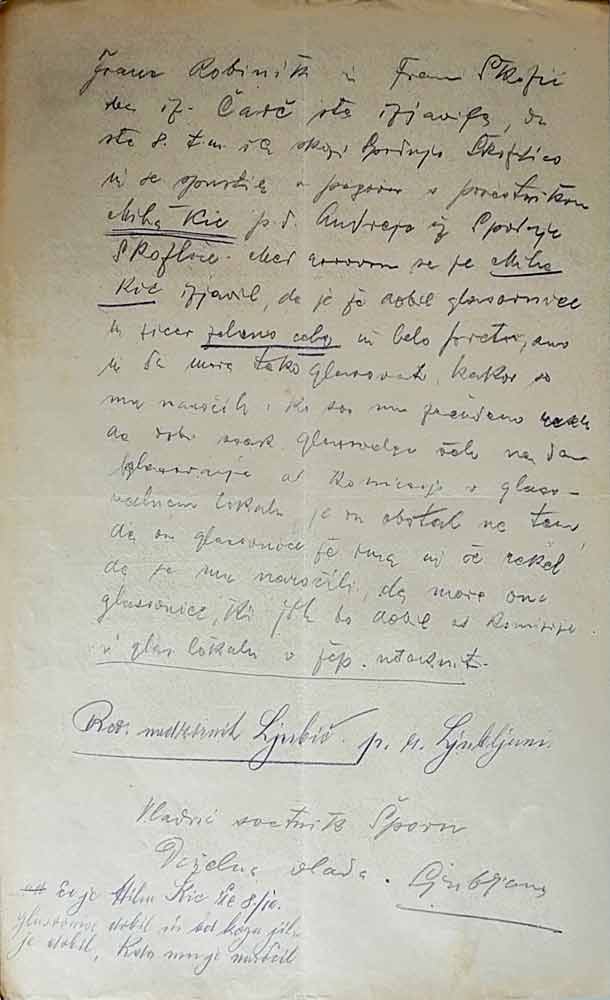 Franc Robinik i Franc Škofic
oba iz Čarč sta izjavila, da
sta 8. t. m. šla skozi Spodnjo Škofljico
in se spustila v pogovor s posestnikom
Miha Kic p. d. Andrejo iz Spodnje
Škofljice. Med govorom se je Miha
Kic izjavil, da je že dobil glasovnice
in sicer zeleno celo in belo
in da mora tako glasovati, kakor so
mu naročili. Ko sta mu začudeno rekla
da dobi vsak glasovalec šele na dan
glasovanja od komisije v glaso-
valnem lokalu je on obstal na tem,
da on glasovnice že ima in če rekel
da so mu naročili, da mora one
glasovnice, ki jih bo dobil od komisije
v glas. lokalu v žep vtakniti.
nadzornik Ljubič p. v. Ljubljani.
Vladni svetnik Šporn
Deželna vlada. Ljubljana
Miha Kic že 8./10.
glasovnice dobil in od koga jih
je dobil, kdo mu je naročil